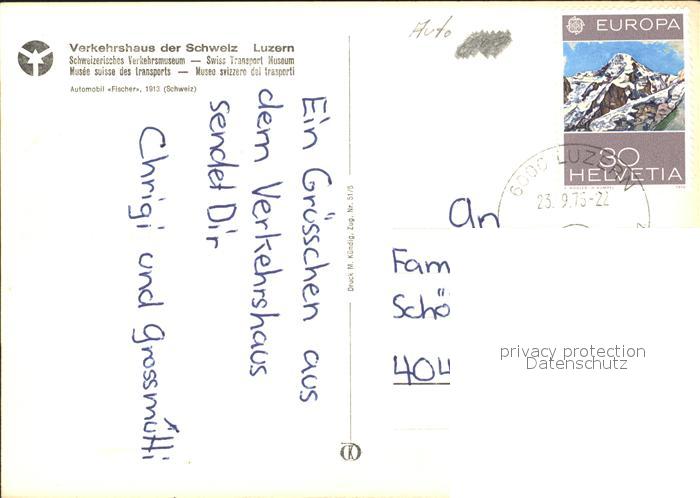 Verkehrshaus der Schweiz Luzern
Schweizerisches Verkehrsmuseum — Swiss Transport Museum
Musée suisse des transports — Museo svizzero dei trasporti
Automobil «Fischer», 1913 (Schweiz)
Auto
EUROPA
30
HELVETIA
6000 LUZERN 2
23.9.76-22
Ein Grüsschen aus
dem Verkehrshaus
sendet Dir
Chrigi und Grossmütti
Druck M. Kündig, Zug, Nr. 51/5
An
Fam
Schö
404
privacy protection
Datenschutz